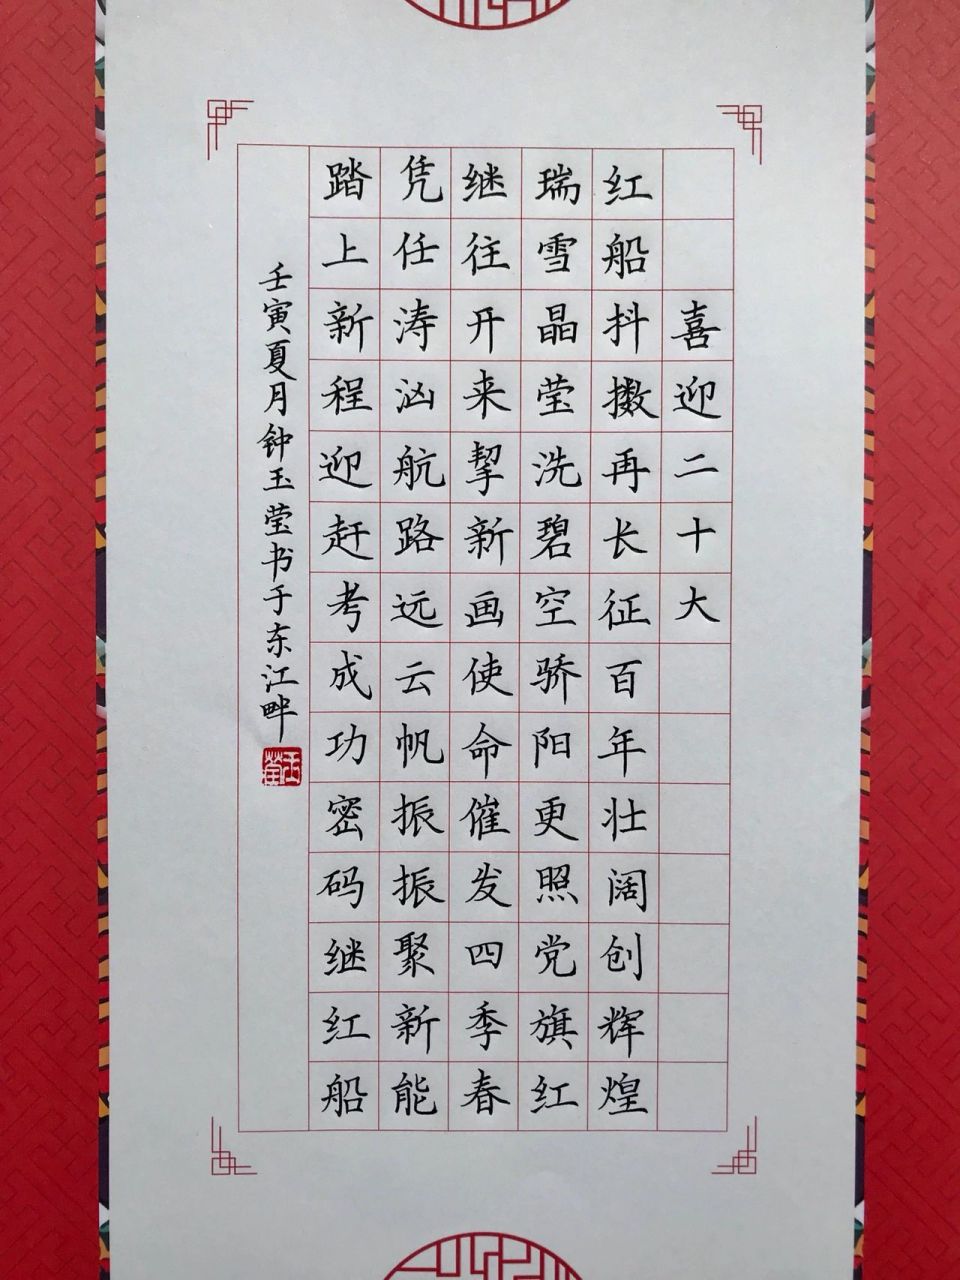 喜迎二十大
红船抖擞再长征百年壮阔创辉煌
瑞雪晶莹洗碧空骄阳更照党旗红
继往开来挈新画使命催发四季春
凭任涛汹航路远云帆振振聚新能
踏上新程迎赶考成功密码继红船
壬寅夏月钟玉莹书于东江畔
玉莹